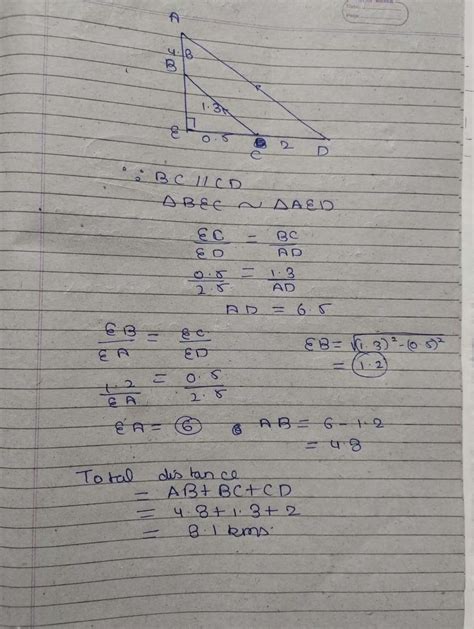 A
4.8
B
1.3
E 0.5 C 2 D
∵ BC // CD
△BEC ~ △AED
EC/ED = BC/AD
0.5/2.5 = 1.3/AD
AD = 6.5
EB/EA = EC/ED EB = √(1.3)² - (0.5)²
= 1.2
1.2/EA = 0.5/2.5
EA = 6 AB = 6 - 1.2
= 4.8
Total distance
= AB + BC + CD
= 4.8 + 1.3 + 2
= 8.1 kms.